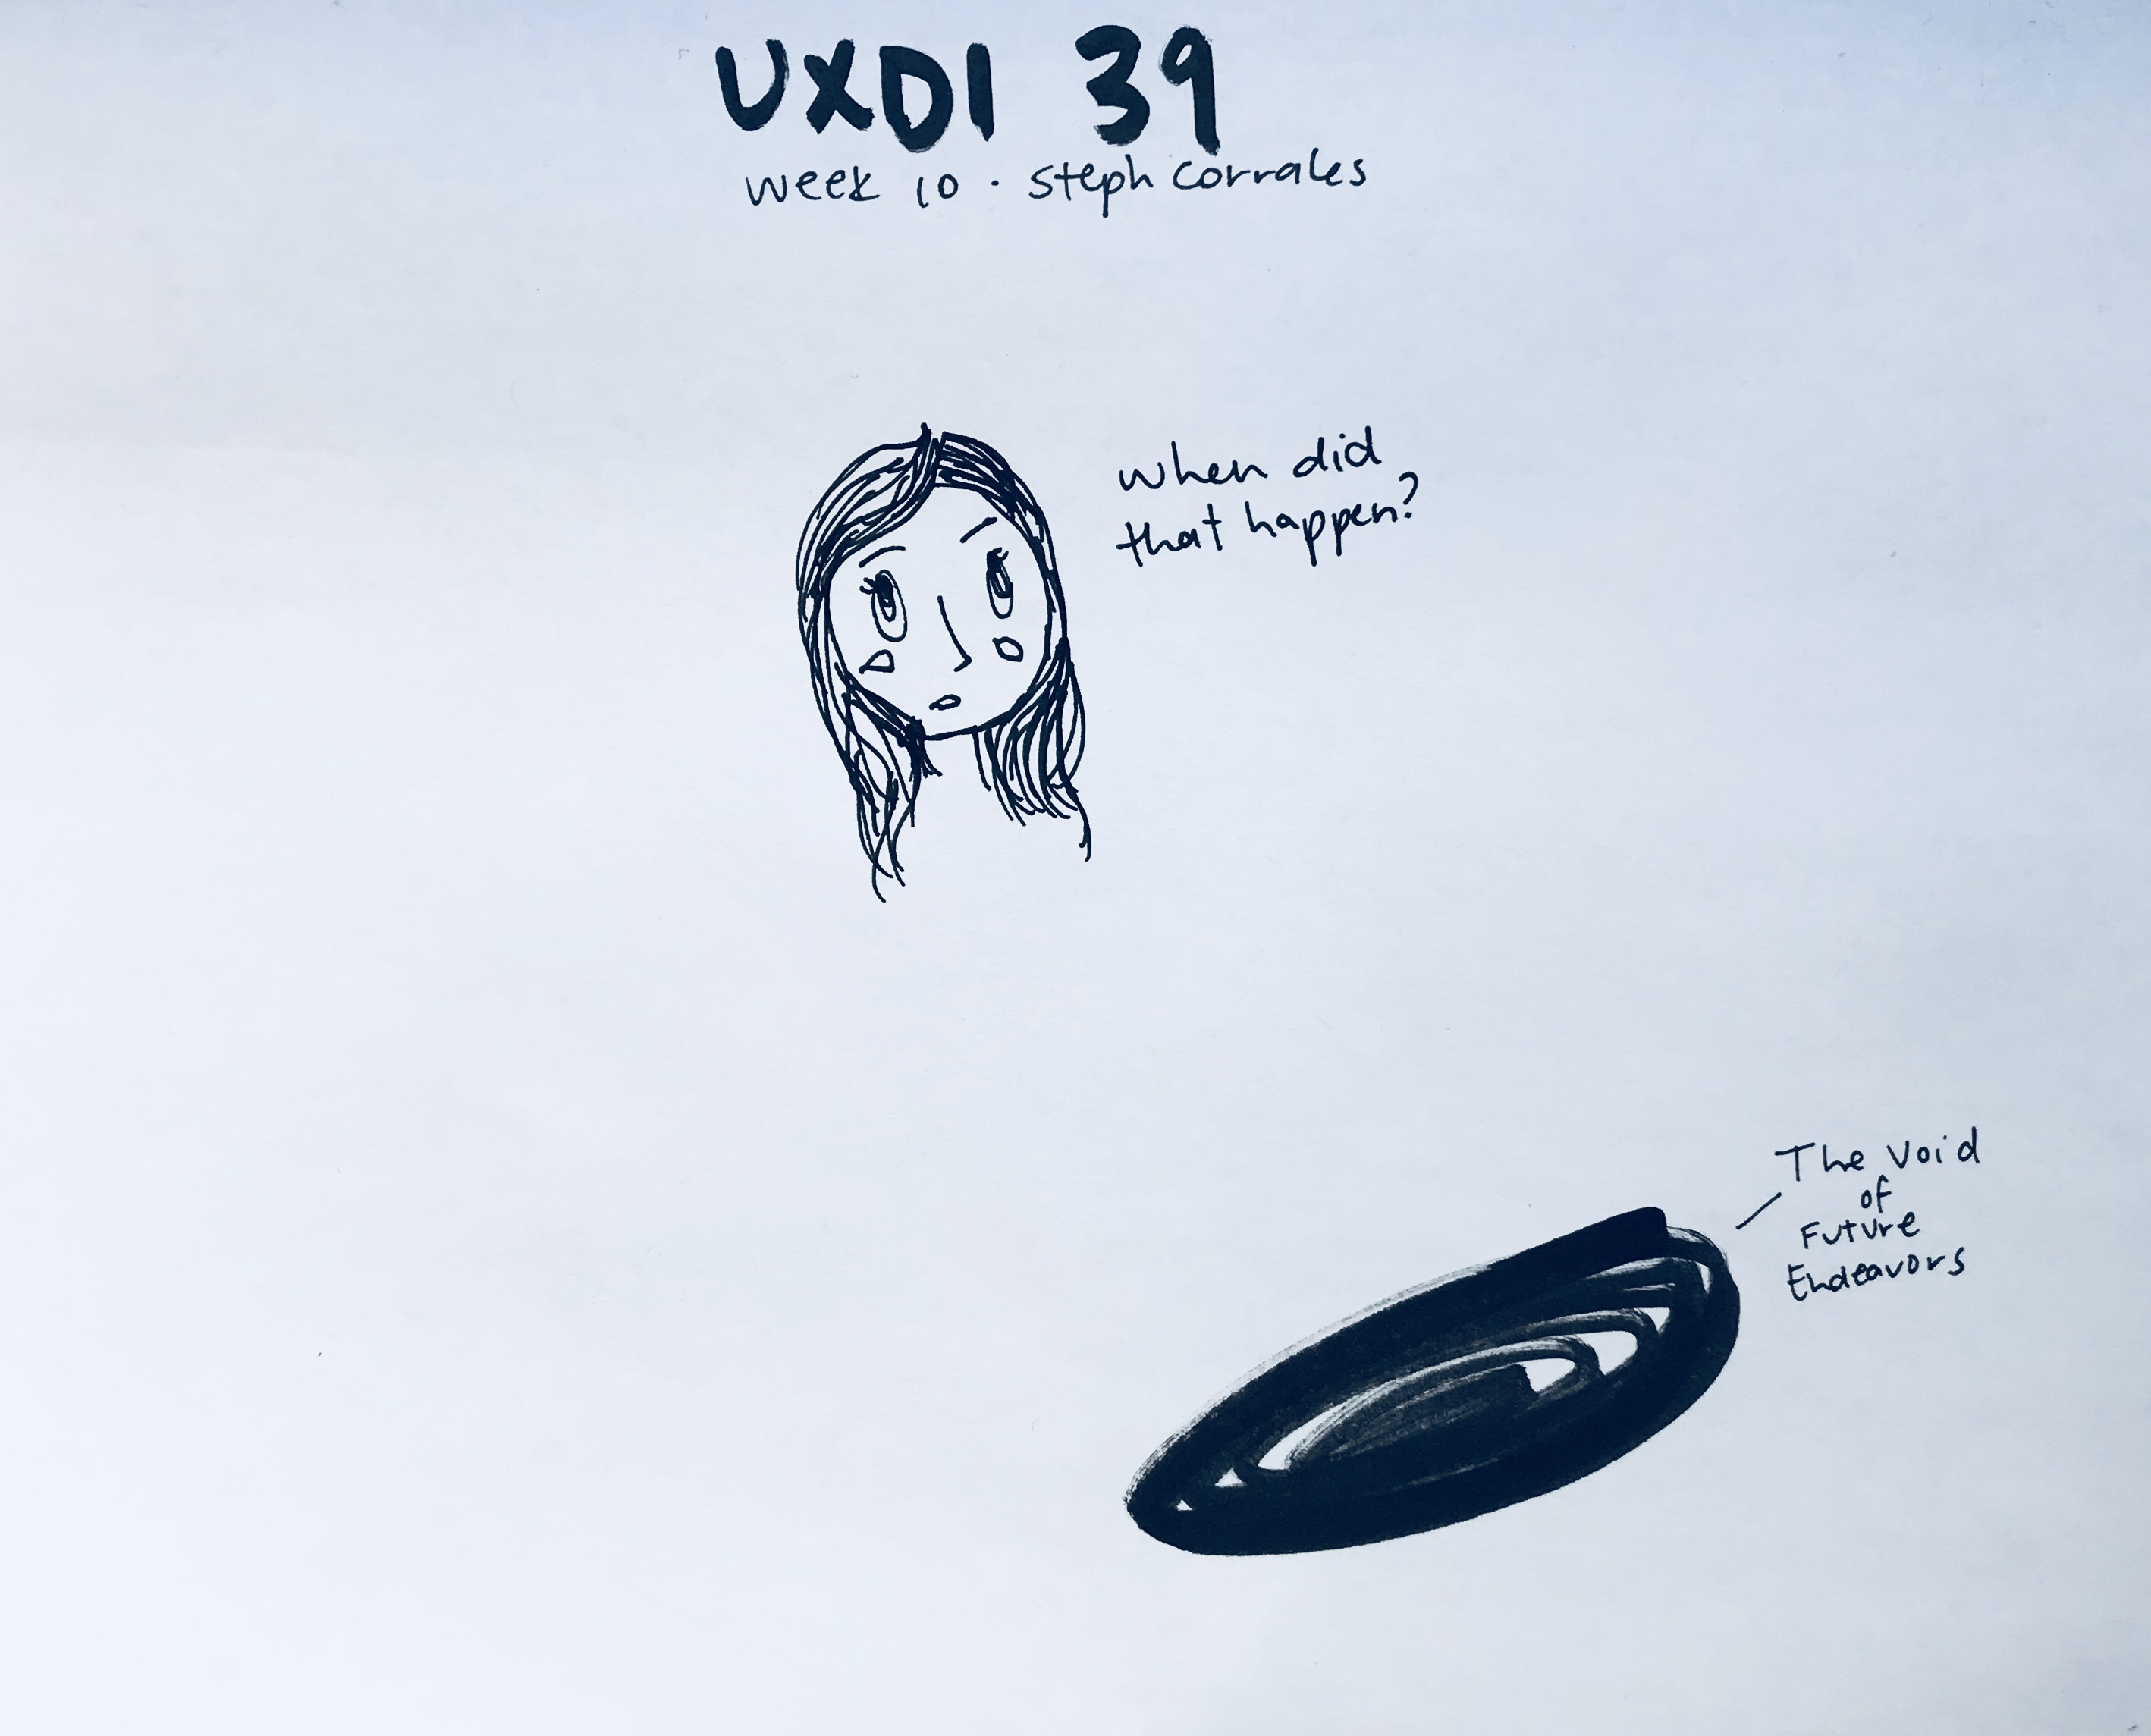 UXDI 39
week 10 · steph corrales
when did
that happen?
The Void
of
Future
Endeavors